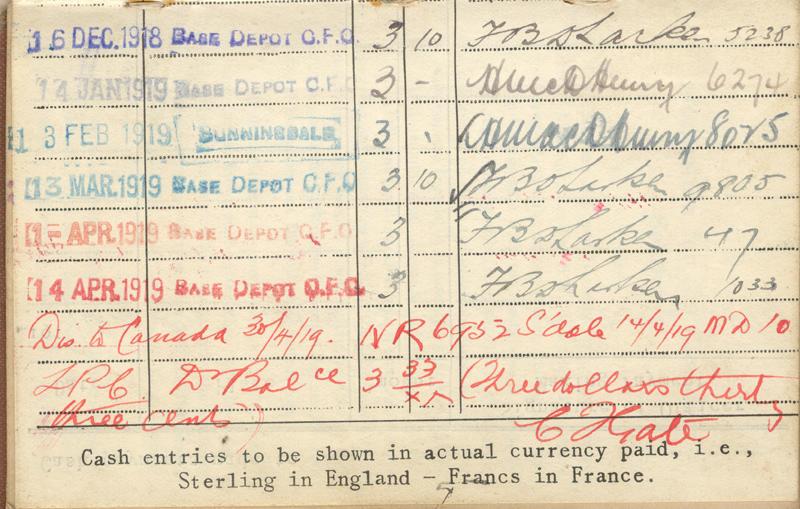 16 DEC. 1918 BASE DEPOT C.F.C. 3 10 5238
14 JAN 1919 BASE DEPOT C.F.C 3 - 6274
13 FEB 1919 SUNNINGDALE 3 8025
13 MAR. 1919 BASE DEPOT C.F.C 3 10 9805
APR. 1919 BASE DEPOT C.F.C 3 47
14 APR. 1919 BASE DEPOT C.F.C. 3 1033
Dis. to Canada 30/4/19. NR 6952 S'dale 14/4/19 MD 10
L.P.C. Dr Balce 3 33/xx (Three dollars thirty
three cents)
Cash entries to be shown in actual currency paid, i.e.,
Sterling in England — Francs in France.